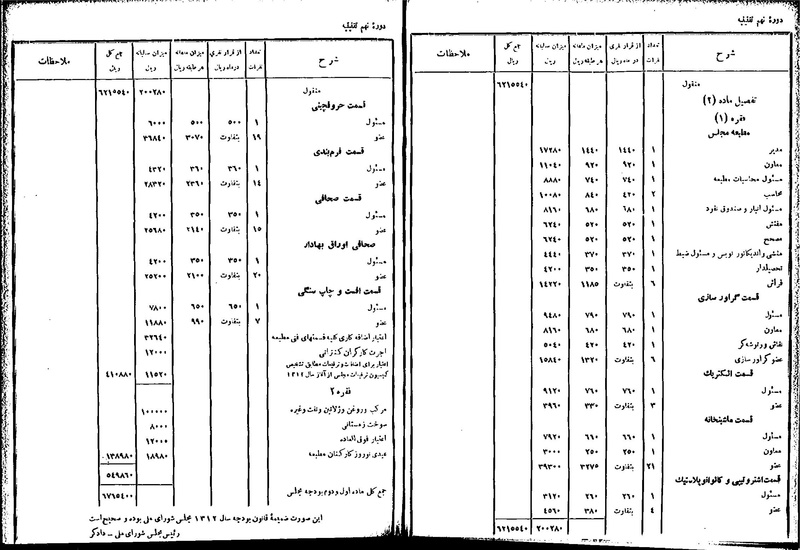 دورهٔ نهم تقنینیه
شرح | تعداد نفرات | از قرار نفری در ماه ریال | میزان ماهانه هر طبقه ریال | میزان سالیانه ریال | جمع کل ریال | ملاحظات
منقول ۶۲۱۵۵۴۰
تفصیل ماده (۲)
فقره (۱)
مطبعه مجلس
مدیر ۱ ۱۴۴۰ ۱۴۴۰ ۱۷۲۸۰
معاون ۱ ۹۲۰ ۹۲۰ ۱۱۰۴۰
مسئول محاسبات مطبعه ۱ ۷۴۰ ۷۴۰ ۸۸۸۰
محاسب ۲ ۴۲۰ ۸۴۰ ۱۰۰۸۰
مسئول انبار و صندوق نفرد ۱ ۶۸۰ ۶۸۰ ۸۱۶۰
مفتش ۱ ۵۲۰ ۵۲۰ ۶۲۴۰
مصحح ۱ ۵۲۰ ۵۲۰ ۶۲۴۰
منشی و اندیکاتور نویس و مسئول ضبط ۱ ۳۷۰ ۳۷۰ ۴۴۴۰
تحصیلدار ۱ ۳۵۰ ۳۵۰ ۴۲۰۰
فراش ۶ بتفاوت ۱۱۸۵ ۱۴۲۲۰
قسمت گراور سازی
مسئول ۱ ۷۹۰ ۷۹۰ ۹۴۸۰
معاون ۱ ۶۸۰ ۶۸۰ ۸۱۶۰
نقاش و رتوشه‌گر ۱ ۴۲۰ ۴۲۰ ۵۰۴۰
عضو گراور سازی ۶ بتفاوت ۱۳۲۰ ۱۵۸۴۰
قسمت الکتریک
مسئول ۱ ۷۶۰ ۷۶۰ ۹۱۲۰
عضو ۳ بتفاوت ۳۳۰ ۳۹۶۰
قسمت ماشینخانه
مسئول ۱ ۶۶۰ ۶۶۰ ۷۹۲۰
معاون ۱ ۲۵۰ ۲۵۰ ۳۰۰۰
عضو ۲۱ بتفاوت ۳۲۷۵ ۳۹۳۰۰
قسمت اشتروتیپی و گالوانوپلاستیک
مسئول ۱ ۲۶۰ ۲۶۰ ۳۱۲۰
عضو ۴ بتفاوت ۳۸۰ ۴۵۶۰
۲۰۰۲۸۰ ۶۲۱۵۵۴۰
دورهٔ نهم تقنینیه
شرح | تعداد نفرات | از قرار نفری در ماه ریال | میزان ماهانه هر طبقه ریال | میزان سالیانه ریال | جمع کل ریال | ملاحظات
منقول ۲۰۰۲۸۰ ۶۲۱۵۵۴۰
قسمت حروفچینی
مسئول ۱ ۵۰۰ ۵۰۰ ۶۰۰۰
عضو ۱۹ بتفاوت ۳۰۷۰ ۳۶۸۴۰
قسمت فرم‌بندی
مسئول ۱ ۳۶۰ ۳۶۰ ۴۳۲۰
عضو ۱۴ بتفاوت ۲۳۶۰ ۲۸۳۲۰
قسمت صحافی
مسئول ۱ ۳۵۰ ۳۵۰ ۴۲۰۰
عضو ۱۵ بتفاوت ۲۱۴۰ ۲۵۶۸۰
صحافی اوراق بهادار
مسئول ۱ ۳۵۰ ۳۵۰ ۴۲۰۰
عضو ۲۰ بتفاوت ۲۱۰۰ ۲۵۲۰۰
قسمت افست و چاپ سنگی
مسئول ۱ ۶۵۰ ۶۵۰ ۷۸۰۰
عضو ۷ بتفاوت ۹۹۰ ۱۱۸۸۰
اعتبار اضافه کاری کلیه قسمتهای فنی مطبعه ۳۲۶۴۰
اجرت کارگران کنتراتی ۱۲۰۰۰
اعتبار برای اضافات و ترفیعات مطابق تشخیص
کمیسیون ترفیعات مجلس از آغاز سال ۱۳۱۲ ۱۱۵۲۰ ۴۱۰۸۸۰
فقره ۲
مرکب و روغن و ژلاتین و نفت و غیره ۱۰۰۰۰۰
سوخت زمستانی ۸۰۰۰
اعتبار فوق‌العاده ۱۲۰۰۰
عیدی نوروز کارکنان مطبعه ۱۸۹۸۰ ۱۳۸۹۸۰
۵۴۹۸۶۰
جمع کل ماده اول و دوم بودجه مجلس ۶۷۶۵۴۰۰
این صورت ضمیمهٔ قانون بودجه سال ۱۳۱۲ مجلس شورای ملی بوده و صحیح است
رئیس مجلس شورای ملی ـ دادگر